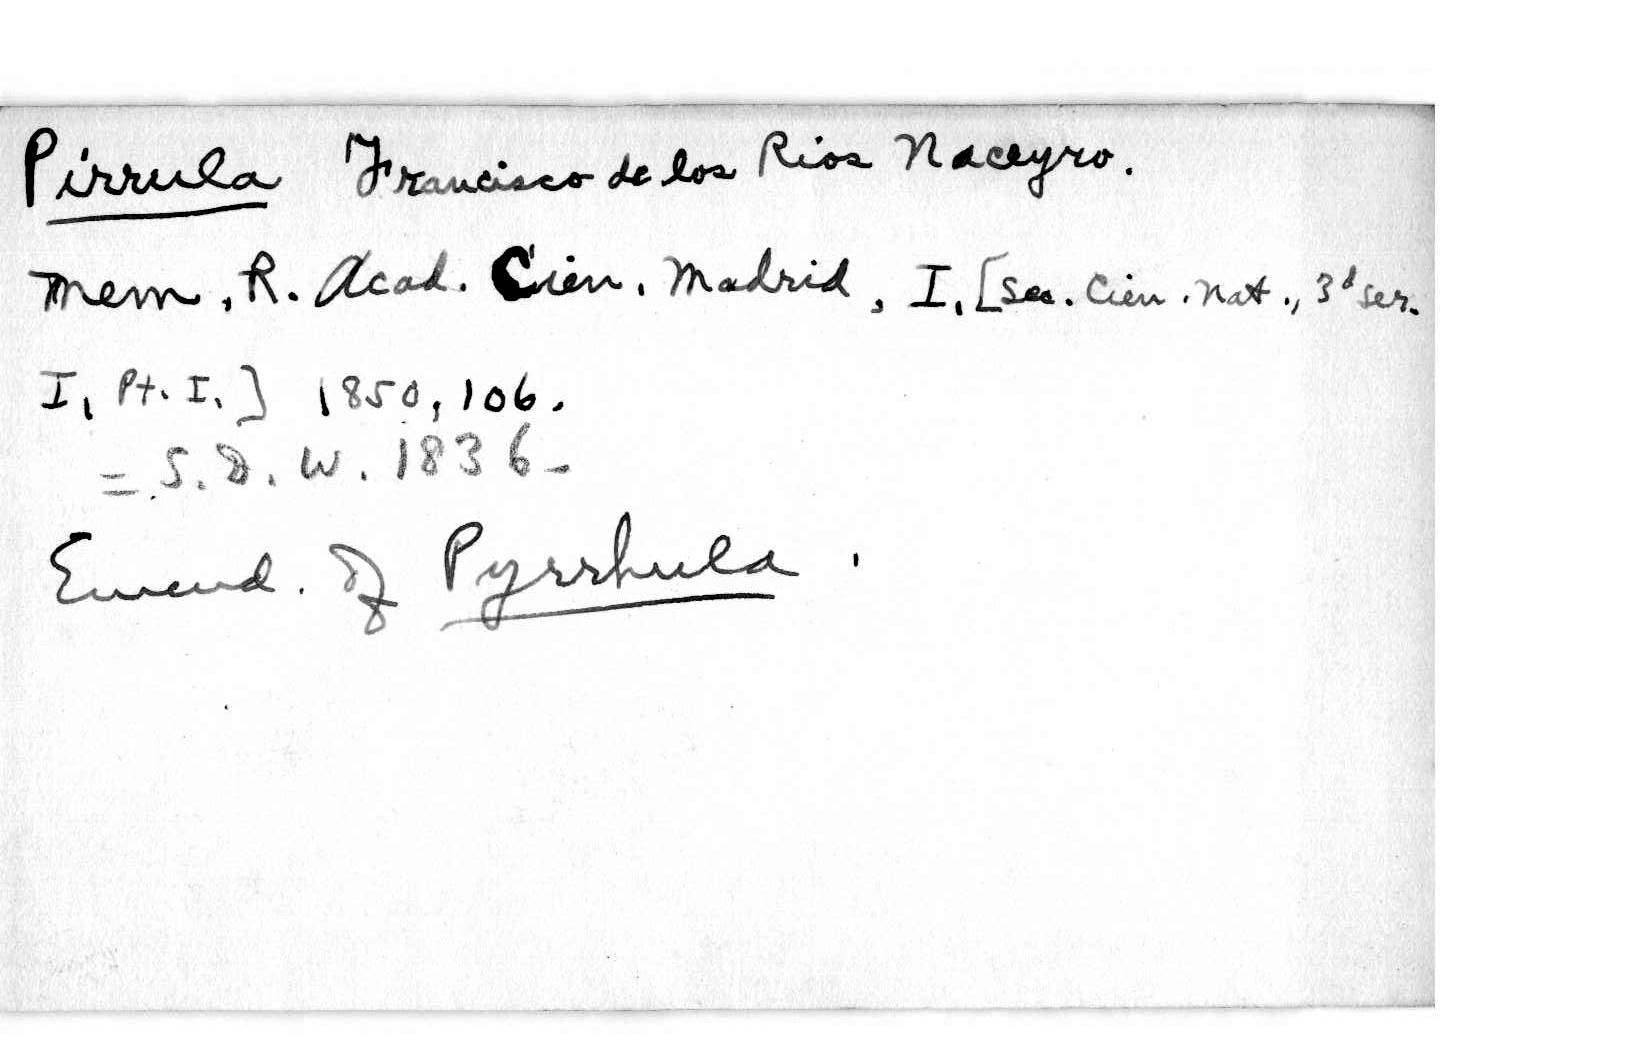 Pirrula Francisco de los Rios Naceyro.
Mem. R. Acad. Cien. Madrid, I, [Sec. Cien. Nat., 3d ser.
I, Pt. I.] 1850, 106.
= S. D. W. 1836-
Emend. of Pyrrhula.